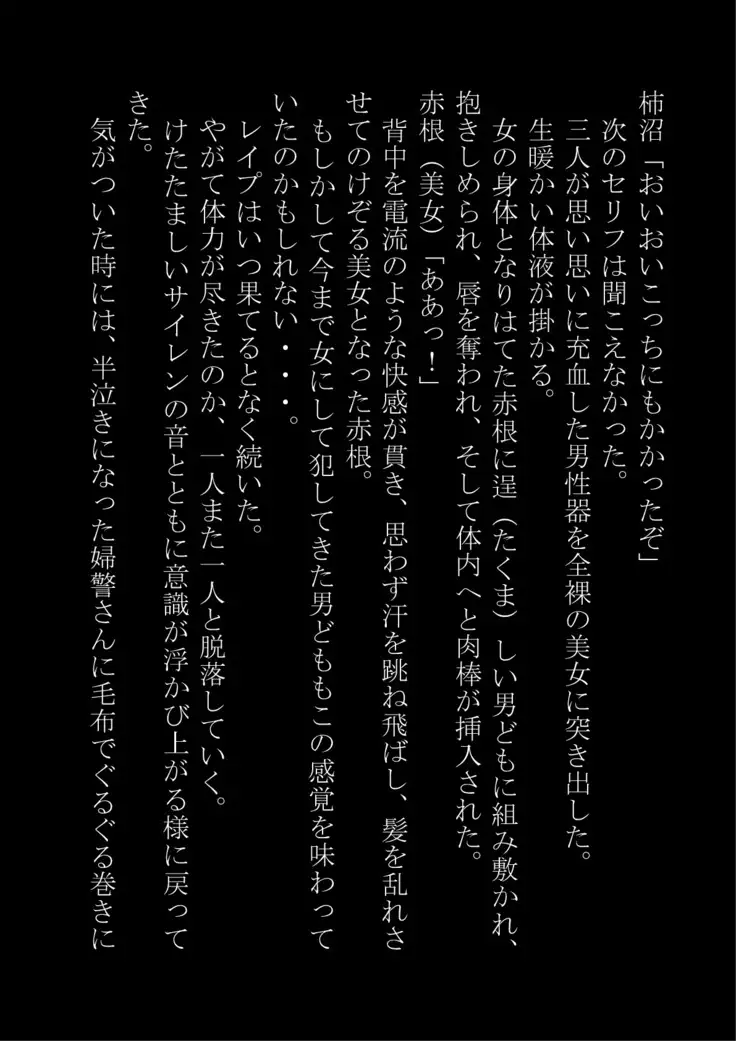 柿沼「おいおいこっちにもかかったぞ」
次のセリフは聞こえなかった。
三人が思い思いに充血した男性器を全裸の美女に突き出した。
生暖かい体液が掛かる。
女の身体となりはてた赤根に逞（たくま）しい男どもに組み敷かれ、
抱きしめられ、唇を奪われ、そして体内へと肉棒が挿入された。
赤根（美女）「ああっ！」
背中を電流のような快感が貫き、思わず汗を跳ね飛ばし、髪を乱れさ
せてのけぞる美女となった赤根。
もしかして今まで女にして犯してきた男どももこの感覚を味わって
いたのかもしれない・・・。
レイプはいつ果てるとなく続いた。
やがて体力が尽きたのか、一人また一人と脱落していく。
けたたましいサイレンの音とともに意識が浮かび上がる様に戻って
きた。
気がついた時には、半泣きになった婦警さんに毛布でぐるぐる巻きに